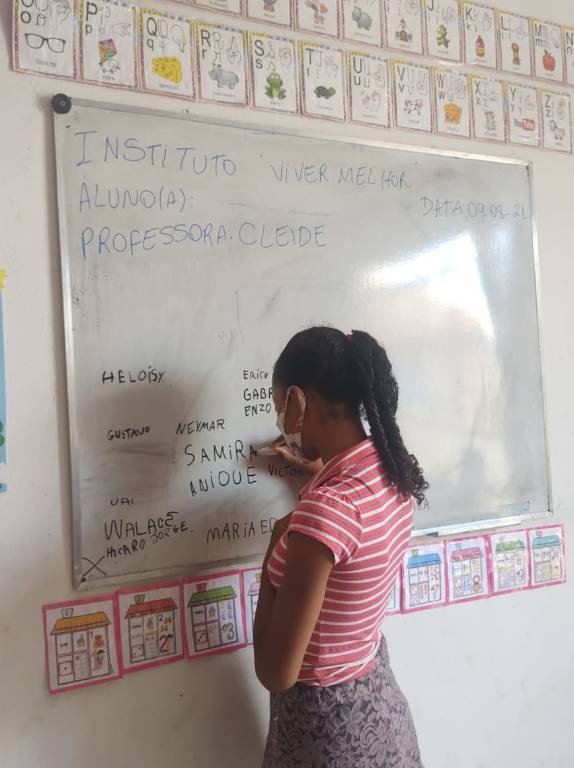 INSTITUTO VIVER MELHOR
ALUNO(A):
DATA: 09.08-21
PROFESSORA: CLEIDE
HELOISY
ERICK
GABR
ENZO
GUSTAVO
NEYMAR
SAMIRA
ANIQUE
VICTO
WALACE
HICARO JORGE
MARIA ED
RA
P
p
Q
q
R
r
S
s
T
t
U
u
V
v
X
Y
Z
YouTube